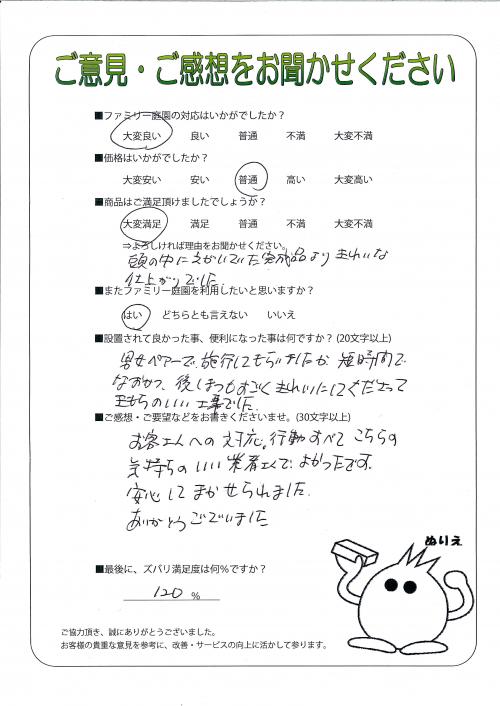 ご意見・ご感想をお聞かせください
■ファミリー庭園の対応はいかがでしたか？
大変良い 良い 普通 不満 大変不満
■価格はいかがでしたか？
大変安い 安い 普通 高い 大変高い
■商品はご満足頂けましたでしょうか？
大変満足 満足 普通 不満 大変不満
⇒よろしければ理由をお聞かせください。
頭の中にえがいていた完成品よりきれいな
仕上がりでした
■またファミリー庭園を利用したいと思いますか？
はい どちらとも言えない いいえ
■設置されて良かった事、便利になった事は何ですか？(20文字以上)
男女ペアーで施行してもらいましたが 短時間で
なおかつ、後しまつもすごくきれいにしてくださって
きもちのいい工事でした。
■ご感想・ご要望などをお書きくださいませ。(30文字以上)
お客さんへの対応。行動すべてこちらの
気持ちのいい業者さんで、よかったです。
安心してまかせられました。
ありがとうございました
ぬりえ
■最後に、ズバリ満足度は何％ですか？
120 %
ご協力頂き、誠にありがとうございました。
お客様の貴重な意見を参考に、改善・サービスの向上に活かして参ります。